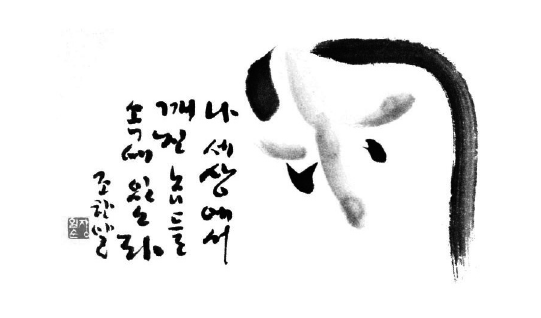 나 세상에서
깨진 놈들
속에 있노라.
조한알
장일순